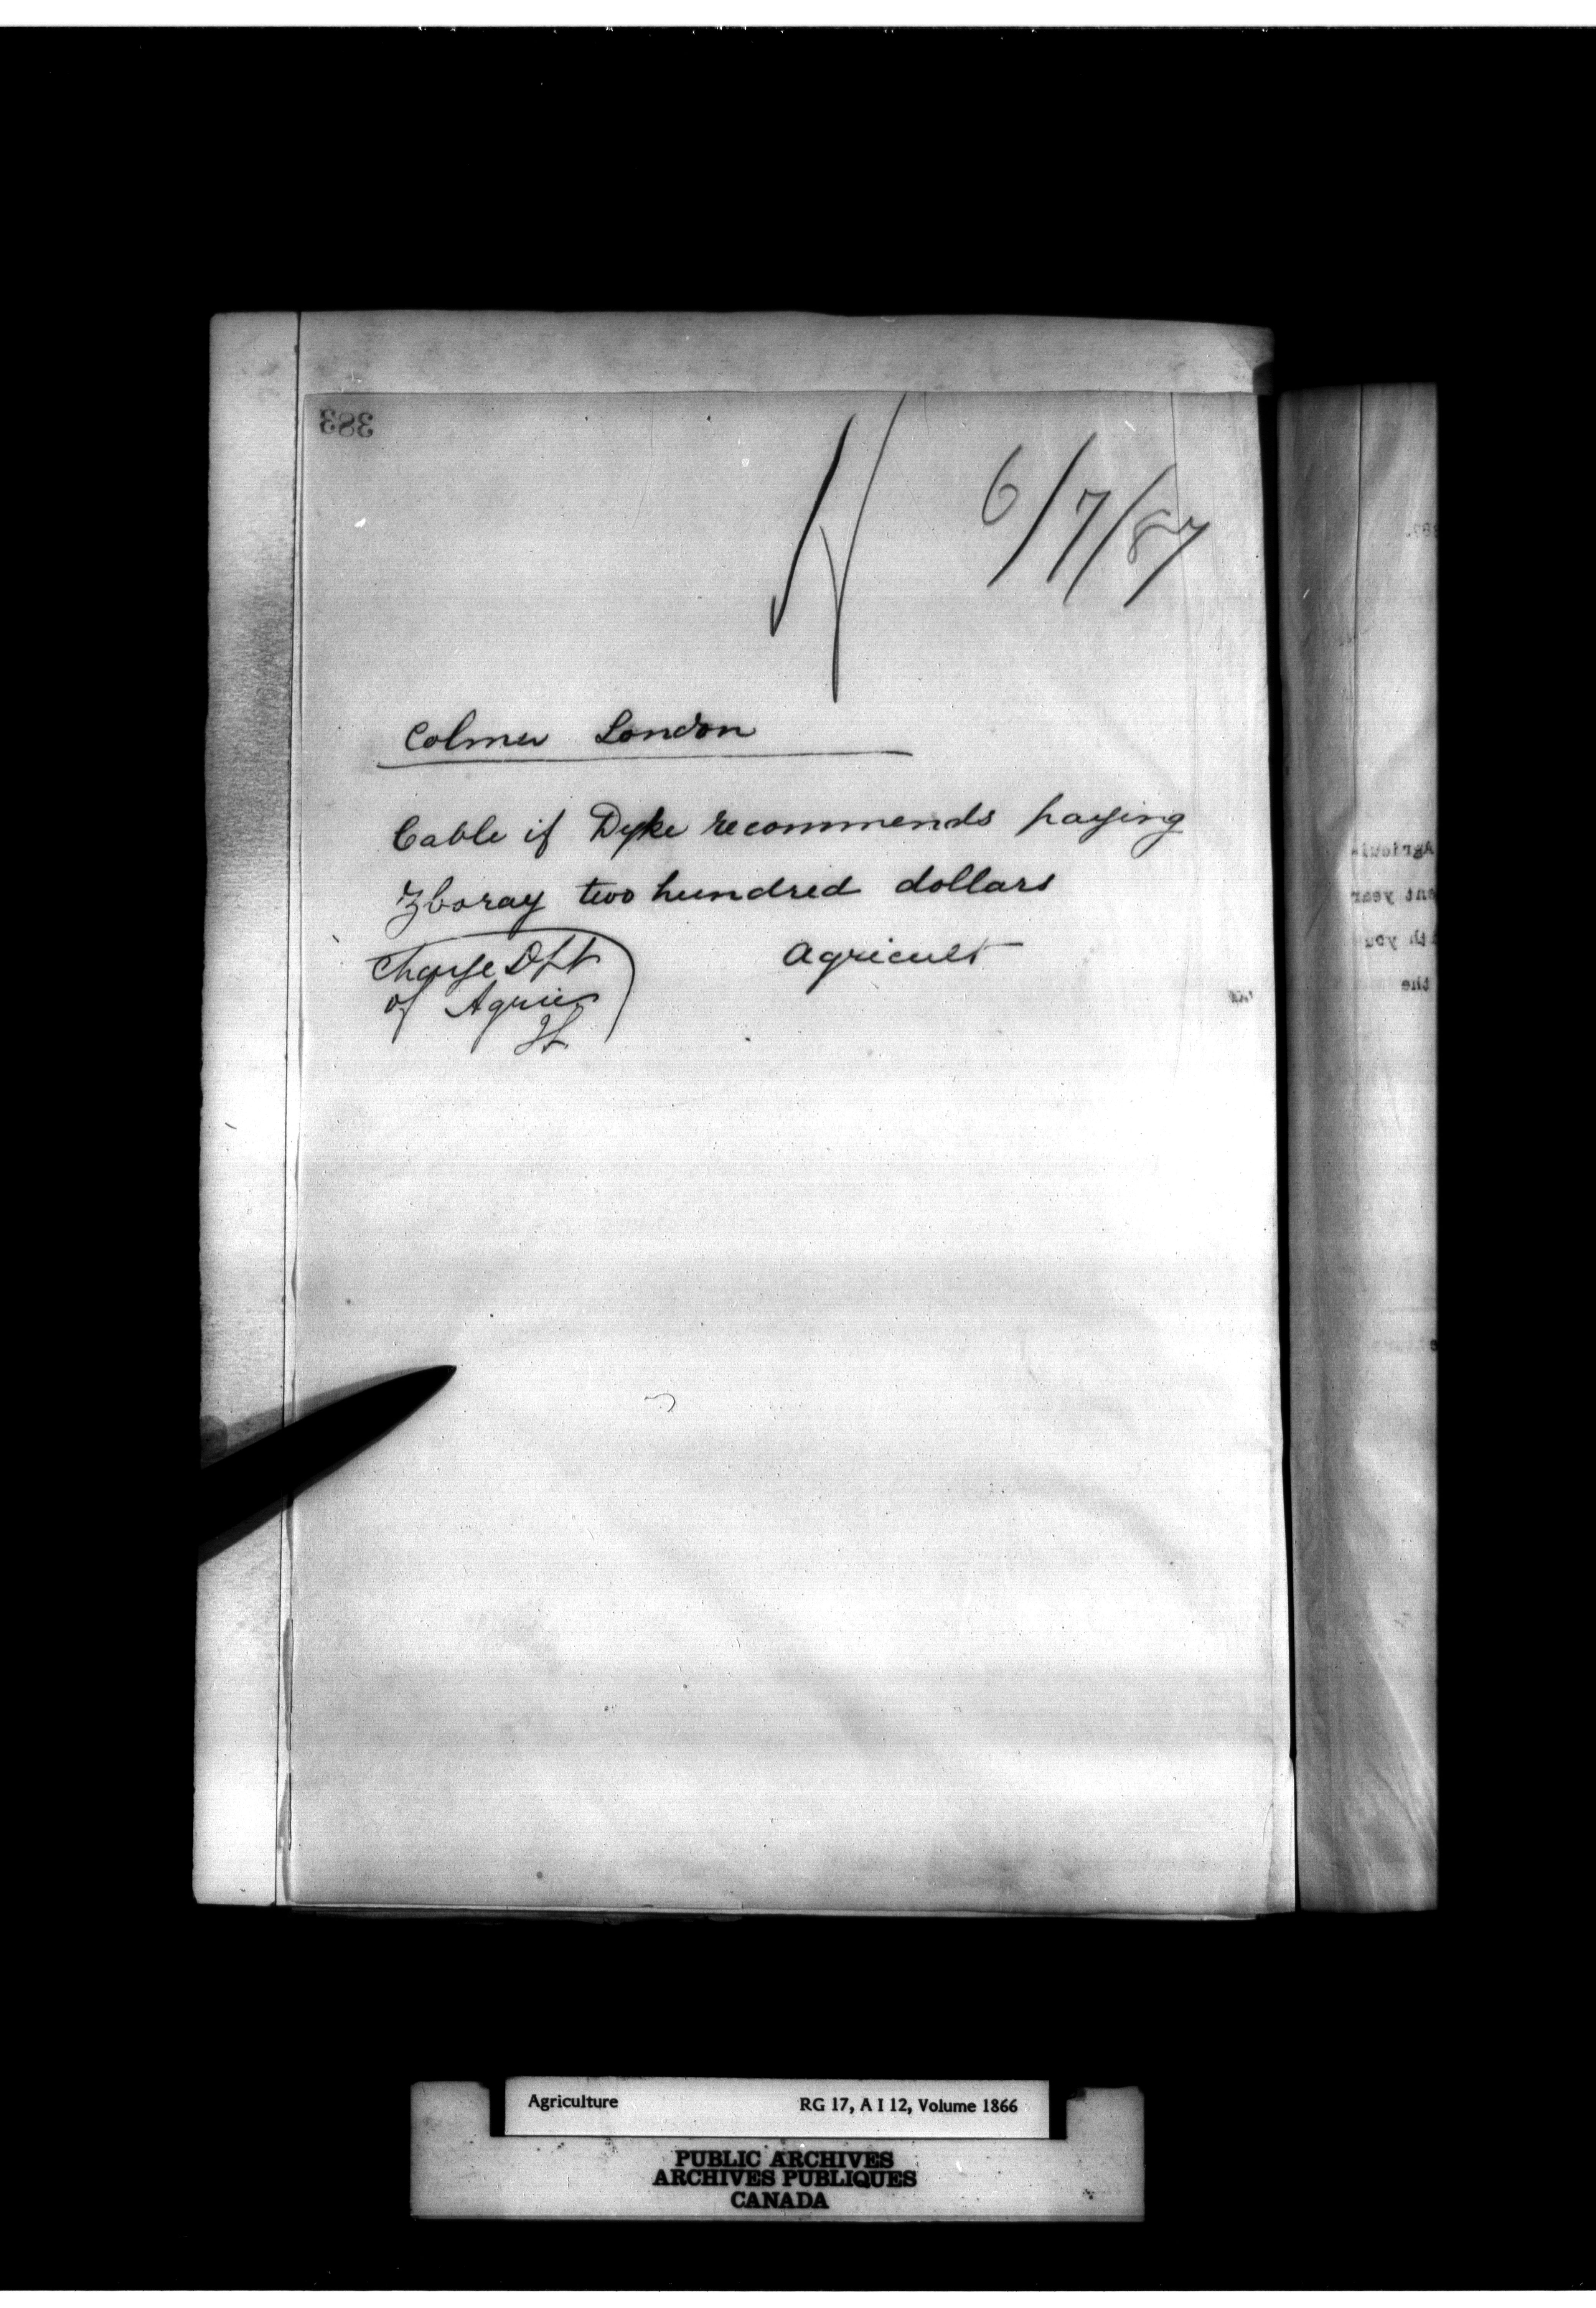 383
6/7/87
Colmer London
Cable if Dyke recommends paying
Zboray two hundred dollars
Agricult
Charge Dpt
of Agric
Agriculture RG 17, A I 12, Volume 1866
PUBLIC ARCHIVES
ARCHIVES PUBLIQUES
CANADA